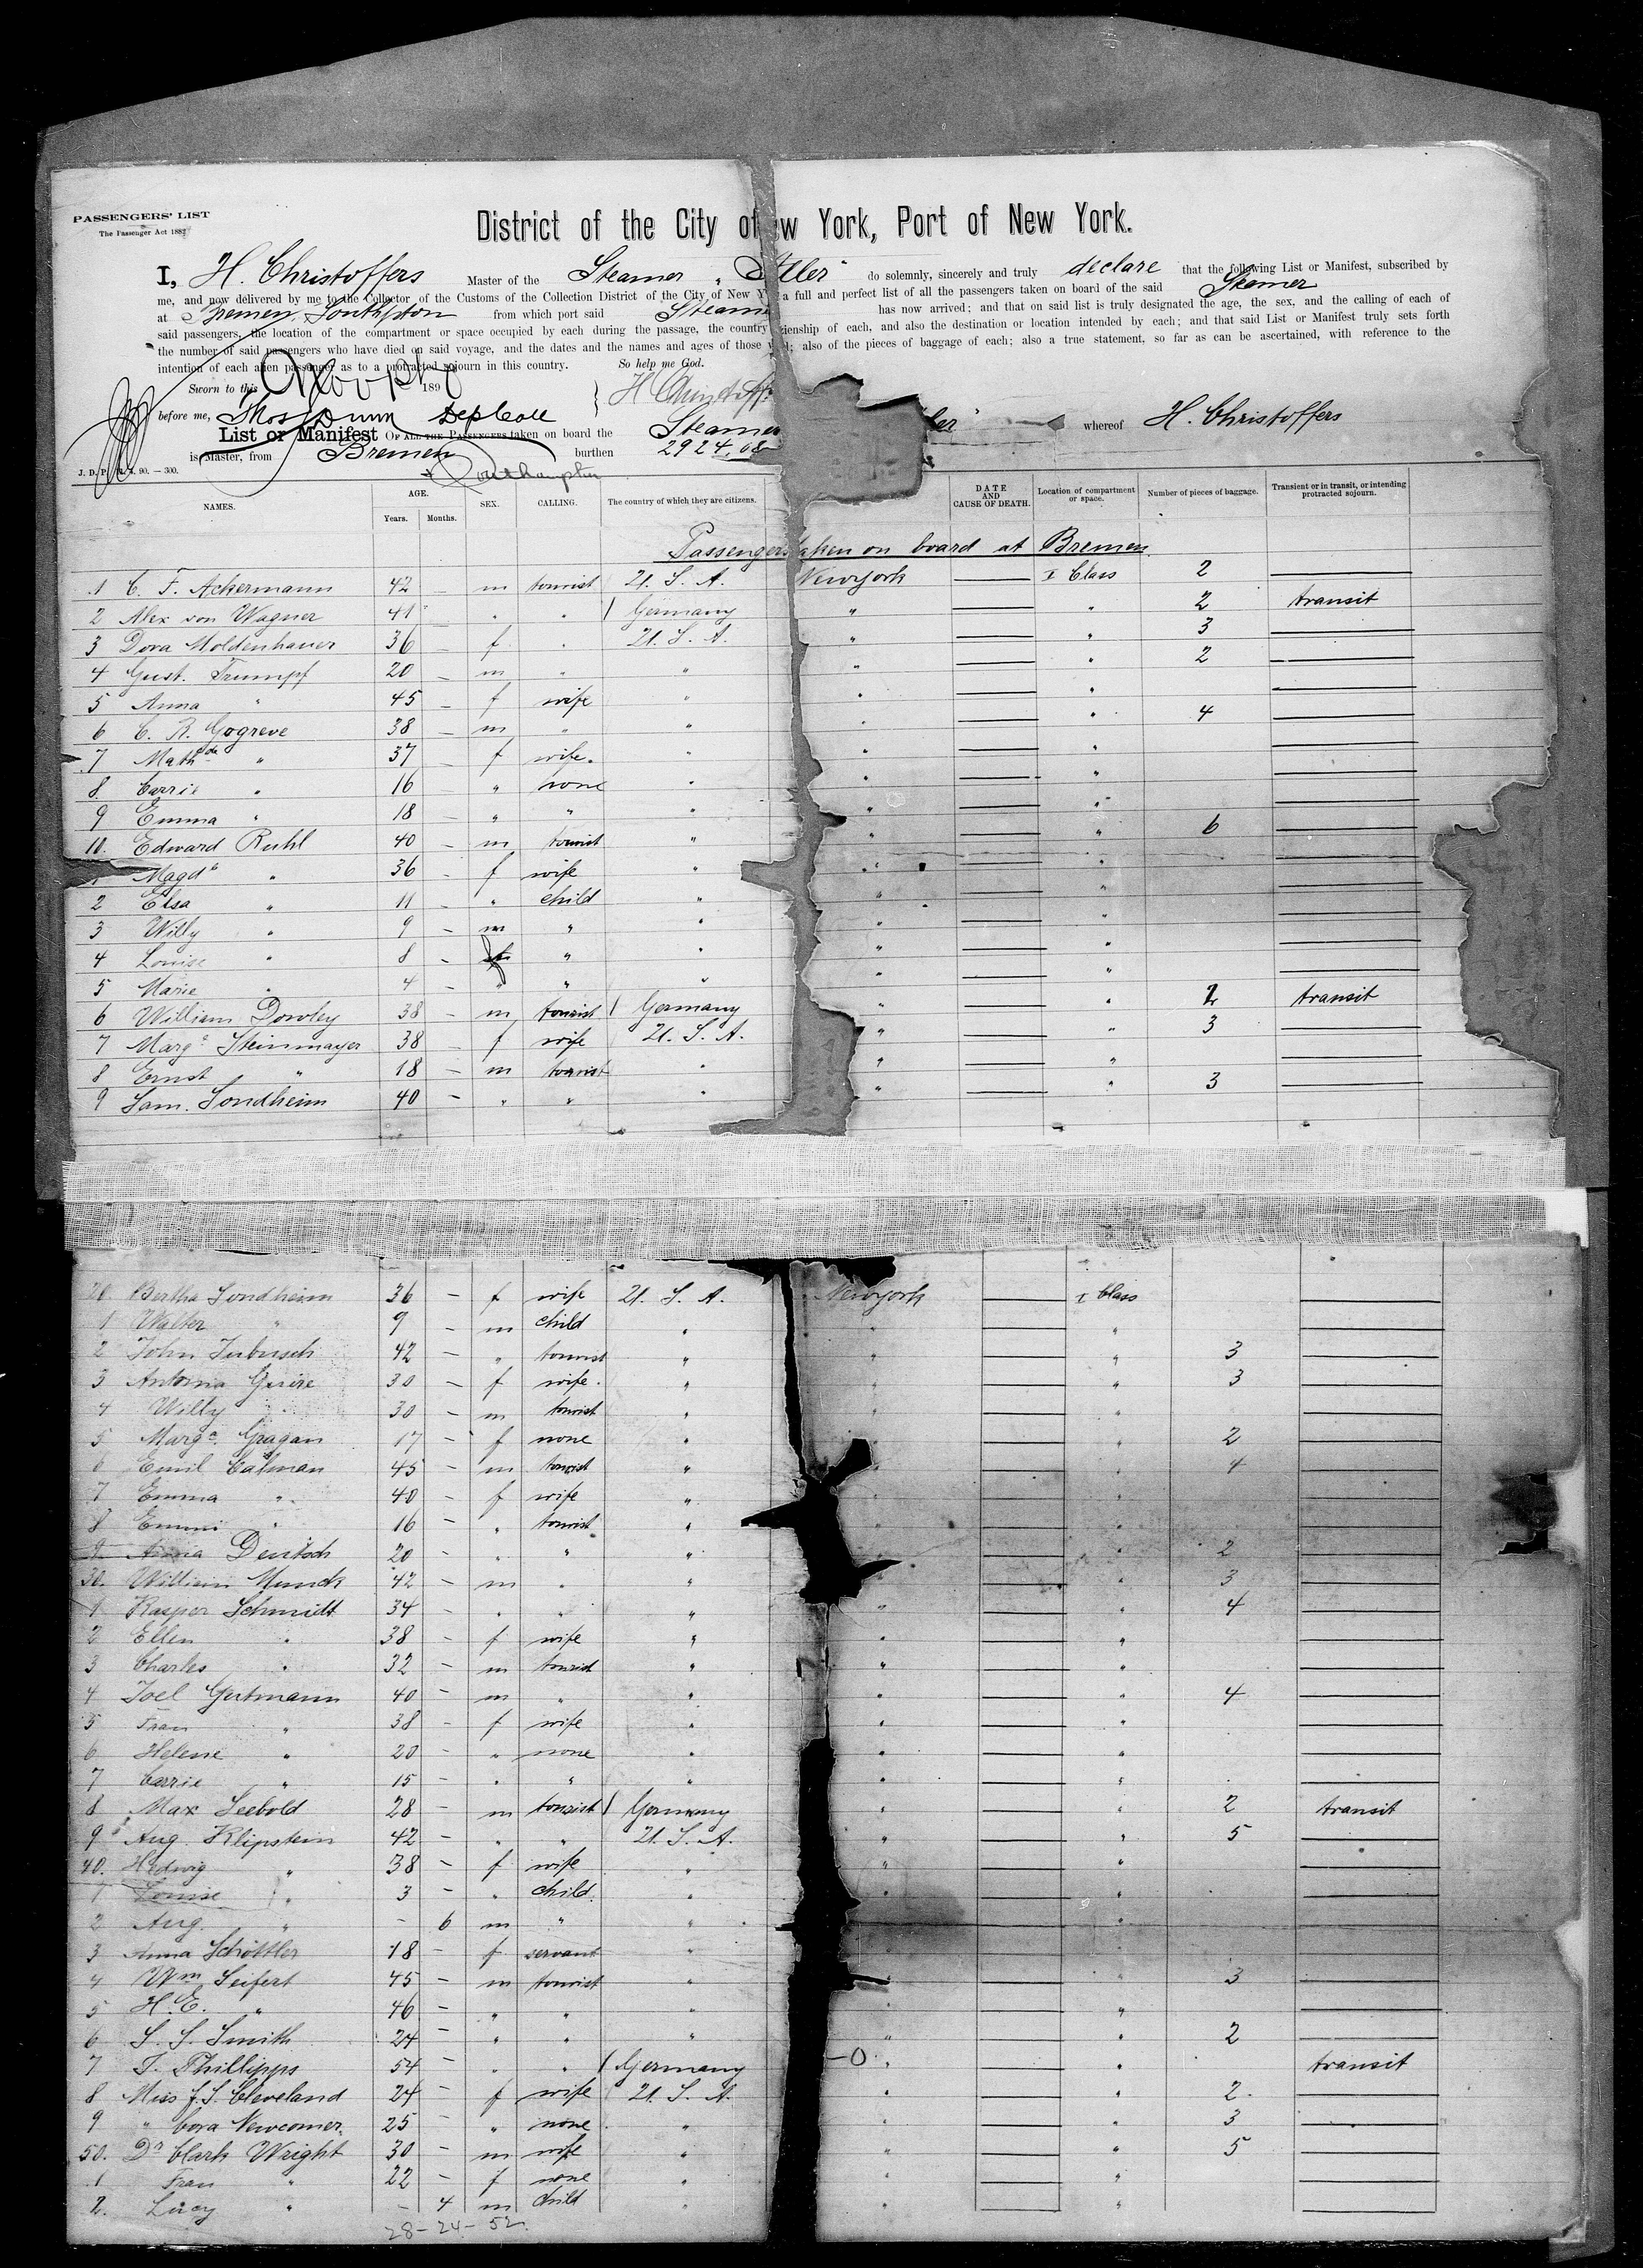 PASSENGERS' LIST
The Passenger Act 1882
District of the City of ew York, Port of New York.
I, H. Christoffers Master of the Steamer „ Aller" do solemnly, sincerely and truly declare that the following List or Manifest, subscribed by
me, and now delivered by me to the Collector of the Customs of the Collection District of the City of New Y a full and perfect list of all the passengers taken on board of the said Steamer
at Bremen, Southpton from which port said Steame has now arrived; and that on said list is truly designated the age, the sex, and the calling of each of
said passengers, the location of the compartment or space occupied by each during the passage, the country zienship of each, and also the destination or location intended by each; and that said List or Manifest truly sets forth
the number of said passengers who have died on said voyage, and the dates and the names and ages of those w d; also of the pieces of baggage of each; also a true statement, so far as can be ascertained, with reference to the
intention of each alien passenger as to a protracted sojourn in this country. So help me God.
Sworn to this 189
before me, H Christoff
List or Manifest OF ALL THE PASSENGERS taken on board the Steamer ler" whereof H. Christoffers
is Master, from Bremen burthen 2924,08
& Southampton
J. D. P. 90. — 300.
NAMES. AGE. Years. Months. SEX. CALLING. The country of which they are citizens. DATE AND CAUSE OF DEATH. Location of compartment or space. Number of pieces of baggage. Transient or in transit, or intending protracted sojourn.
Passengers taken on board at Bremen
1 C. F. Ackermann 42 — m tourist U. S. A. Newyork — I Class 2 —
2 Alex von Wagner 41 — " " Germany " — " 2 transit
3 Dora Moldenhauer 36 — f " U. S. A. " — " 3 —
4 Gust. Trumpf 20 — m " " " — " 2 —
5 Anna " 45 — f wife " " — " —
6 C. R. Gogreve 38 — m " " " — " 4 —
7 Mathde " 37 — f wife " " — " —
8 Carrie " 16 " none " " — " —
9 Emma " 18 — " " " " — " —
10. Edward Ruhl 40 — m tourist " " — " 6 —
1 Magde " 36 — f wife " " — " —
2 Elsa " 11 — " child " " — " —
3 Willy " 9 — m " " " — " —
4 Louise " 8 — f " " " — " —
5 Marie " 4 — " " " " — " —
6 William Dowley 38 — m tourist Germany " — " 2 transit
7 Marge Steinmayer 38 — f wife U. S. A. " — " 3 —
8 Ernst " 18 — m tourist " " — " —
9 Sam. Sondheim 40 — " " " " — " 3 —
20 Bertha Sondheim 36 — f wife U. S. A. Newyork — I Class —
1 Walter " 9 — m child " " — " —
2 John 42 — " tourist " " — " 3 —
3 Antonia 30 — f wife " " — " 3 —
4 Willy " 30 — m tourist " " — " —
5 Marge. Gragan 17 — f none " " — " 2 —
6 Emil Calman 45 — m tourist " " — " 4 —
7 Emma " 40 — f wife " " — " —
8 Emmi " 16 — " tourist " " — " —
9 Anna Deutsch 20 — " " " " — " 2 —
30. William Munck 42 — m " " " — " 3 —
1 Kasper Schmidt 34 — " " " " — " 4 —
2 Ellen " 38 — f wife " " — " —
3 Charles " 32 — m tourist " " — " —
4 Joel Gutmann 40 — m " " " — " 4 —
5 Frau " 38 — f wife " " — " —
6 Helene " 20 — " none " " — " —
7 Carrie " 15 — " " " " — " —
8 Max Seebold 28 — m tourist Germany " — " 2 transit
9 Aug. Klipstein 42 — " " U. S. A. " — " 5 —
40. Hedwig " 38 — f wife " " — " —
1 Louise " 3 — " child. " " — " —
2 Aug. " — 6 m " " — " —
3 Anna Schöttler 18 — f servant " — " —
4 Wm Seifert 45 — m tourist " " — " 3 —
5 H. E. " 46 — " " " " — " —
6 S. S. Smith 24 — " " " " — " 2 —
7 T. Phillipps 54 — " " Germany —0 " — " transit
8 Miss J. S. Cleveland 24 — f wife U. S. A. " — " 2 —
9 " Cora Newcomer. 25 — " none " " — " 3 —
50. Dr Clark Wright 30 — m wife " " — " 5 —
1 Frau " 22 — f none " " — " —
2. Lucy " — 4 m child " " — " —
28 - 24 - 52